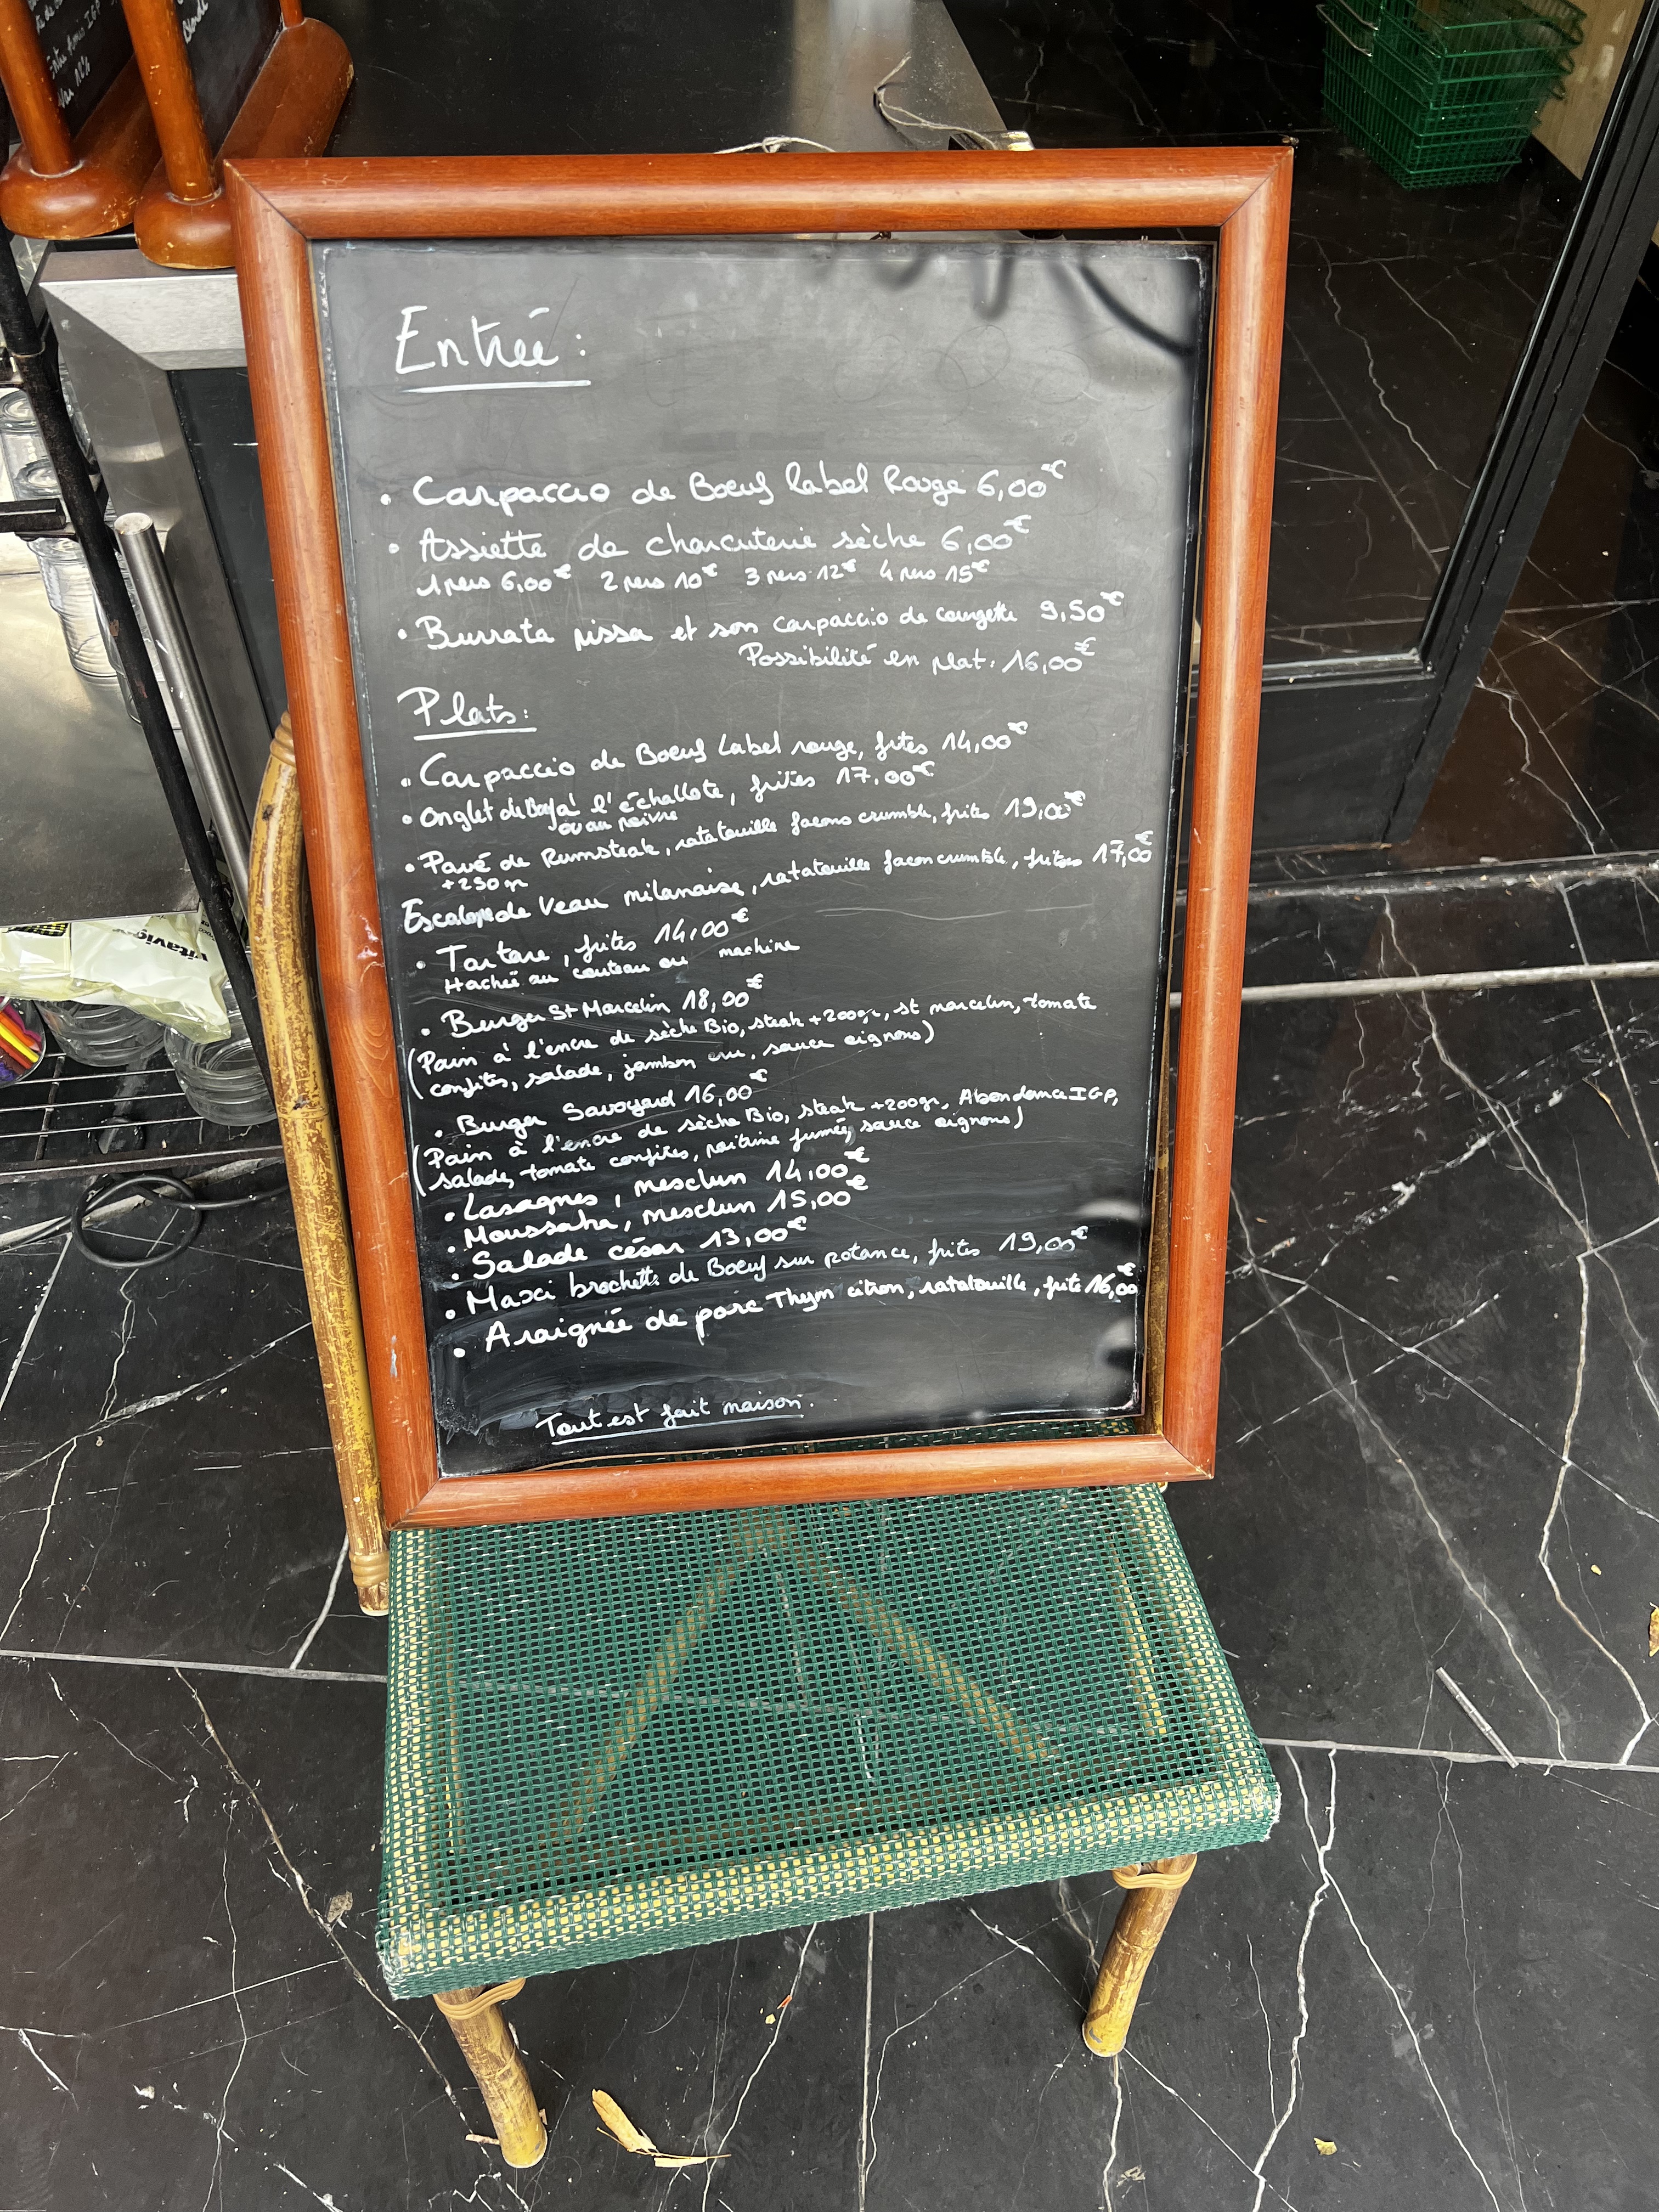 Entrée :
• Carpaccio de Boeuf label Rouge 6,00€
• Assiette de charcuterie sèche 6,00€
1 pers 6,00€ 2 pers 10€ 3 pers 12€ 4 pers 15€
• Burrata pissa et son carpaccio de courgette 9,50€
Possibilité en plat. 16,00€
Plats:
• Carpaccio de Boeuf Label rouge, frites 14,00€
• Onglet de Boeuf à l'échallote, frites 17.00€
ou au poivre
• Pavé de Rumsteak, ratatouille facons crumble, frites 19,00€
+250 gr
Escalope de Veau milanaise, ratatouille facon crumble, frites 17,00€
• Tartare, frites 14,00€
Hachée au couteau ou machine
• Burger St Marcelin 18,00€
(Pain à l'encre de sèche Bio, steak +200gr, st marcelin, tomate
confites, salade, jambon cru, sauce oignons)
• Burger Savoyard 16,00€
(Pain à l'encre de sèche Bio, steak +200gr, Abondance IGP,
salade, tomate confites, poitrine fumée, sauce oignons)
• Lasagnes, mesclun 14,00€
• Moussaka, mesclun 15,00€
• Salade césar 13,00€
• Maxi brochette de Boeuf sur potance, frites 19,00€
• Araignée de porc Thym citron, ratatouille, frite 16,00€
Tout est fait maison.
vitavigor